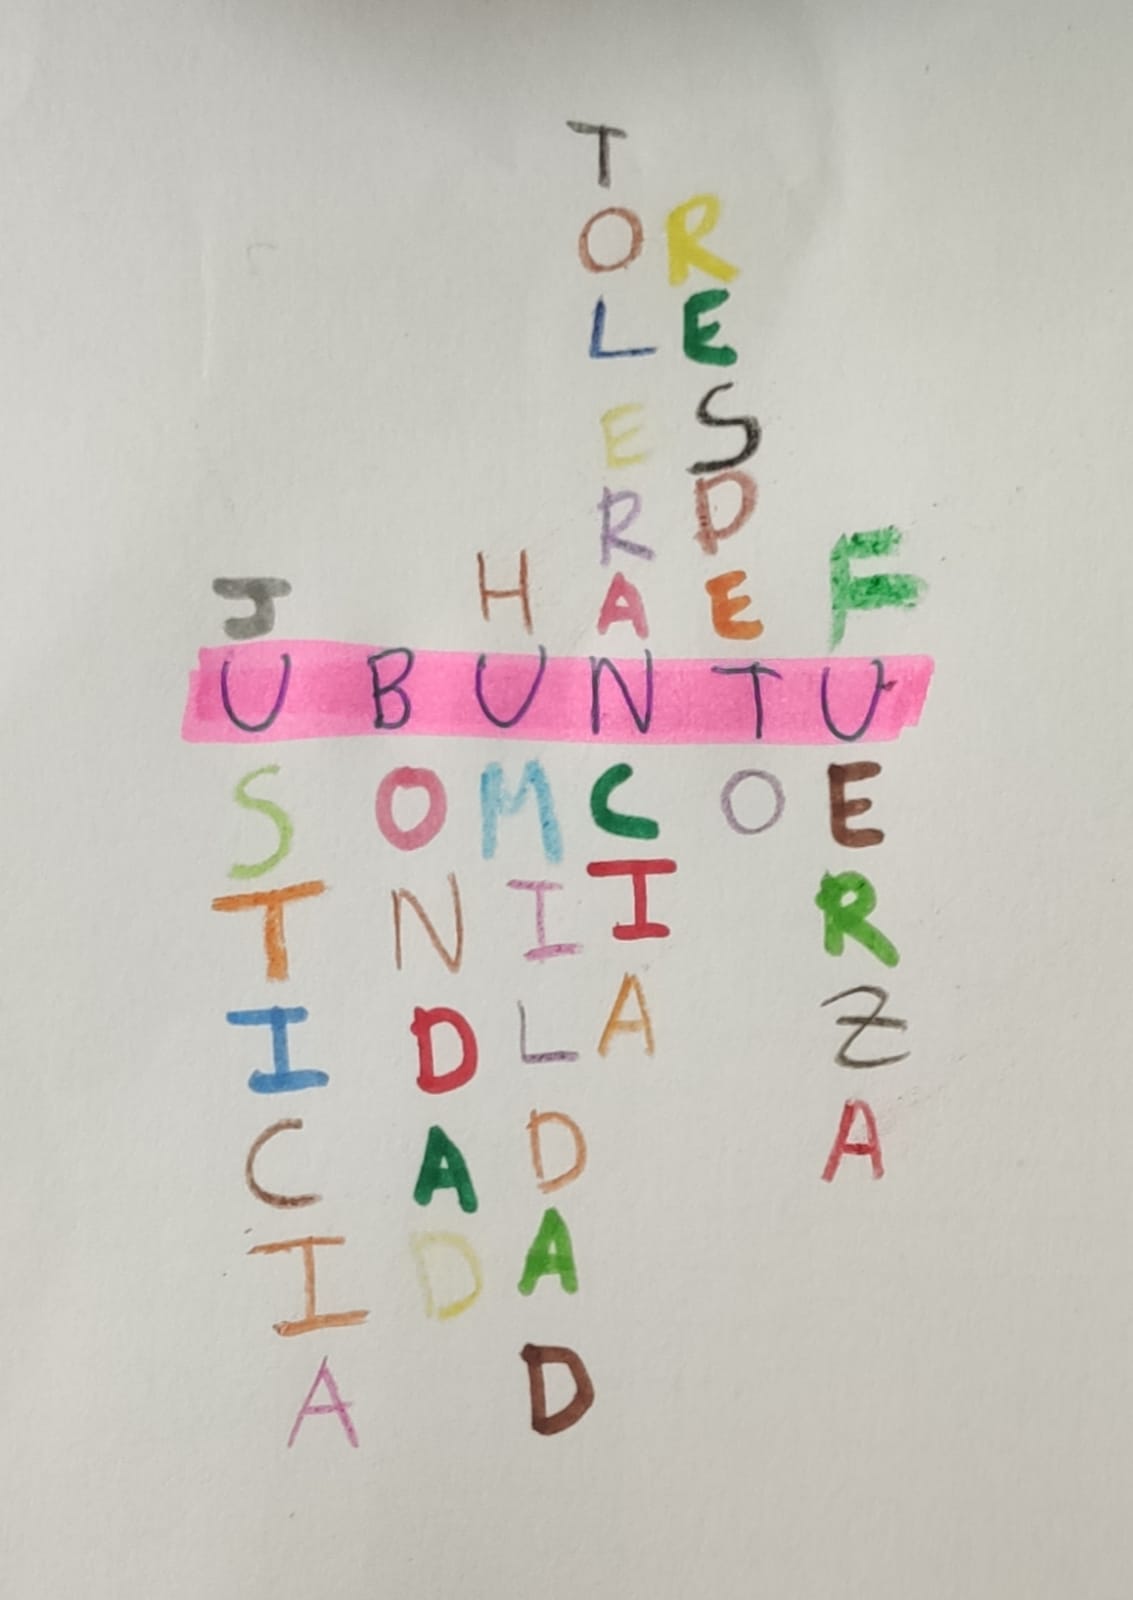 UBUNTU
JUSTICIA
BONDAD
HUMILDAD
TOLERANCIA
RESPETO
FUERZA